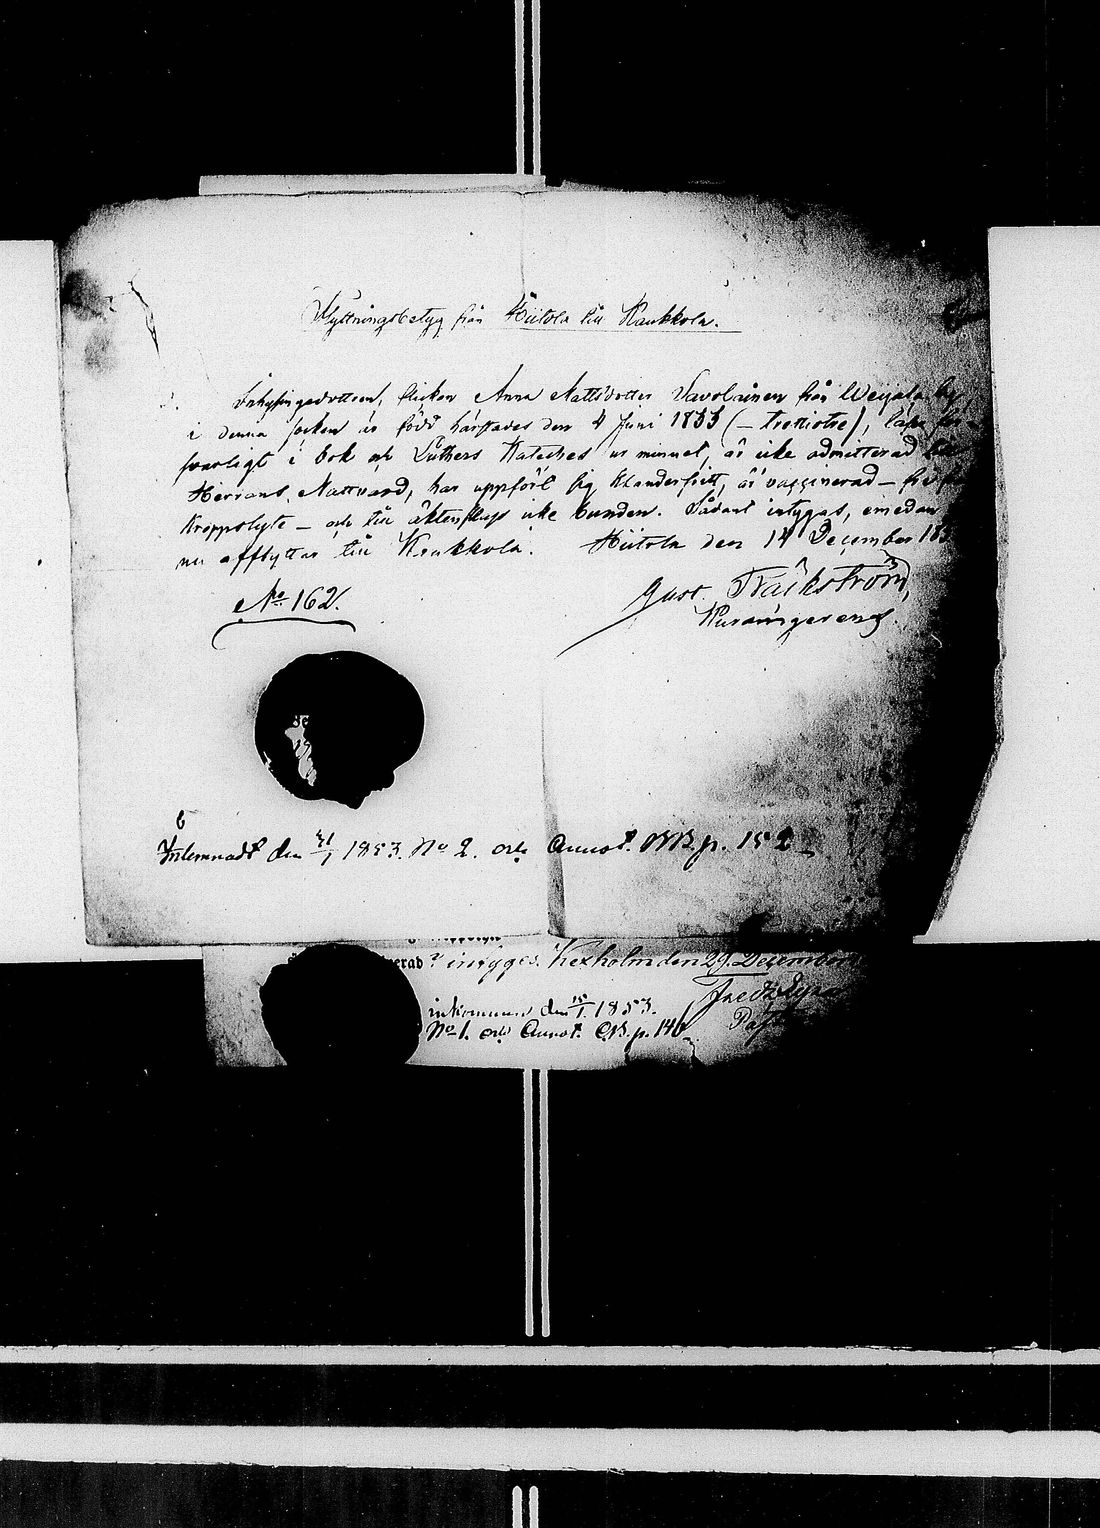 Flyttningsbetyg från Hiitola till Kaukkola.
Inhysingedottren, flickan Anna Mattsdotter Savolainen från Weijala by
i denna socken är född härstädes den 4 Juni 1833 (– trettiotre), läser för-
svarligt i bok och Luthers Kateches ur minnet, är icke admitterad till
Herrans Nattvard, har uppfört sig klanderfritt, är vaccinerad – fri från
kroppslyte – och till äktenskap icke bunden. Sådant intygas, emedan
nu afflyttar till Kaukkola. Hiitola den 14 December 185
No 162.
Gust. Fräikström,
6
Inlemnadt den 31/1 1853. No 2. och Annot. p. 152
erad intygas. Kexholm den 29 December
inkommen den 15/1 1853.
No 1. och Annot. p. 140